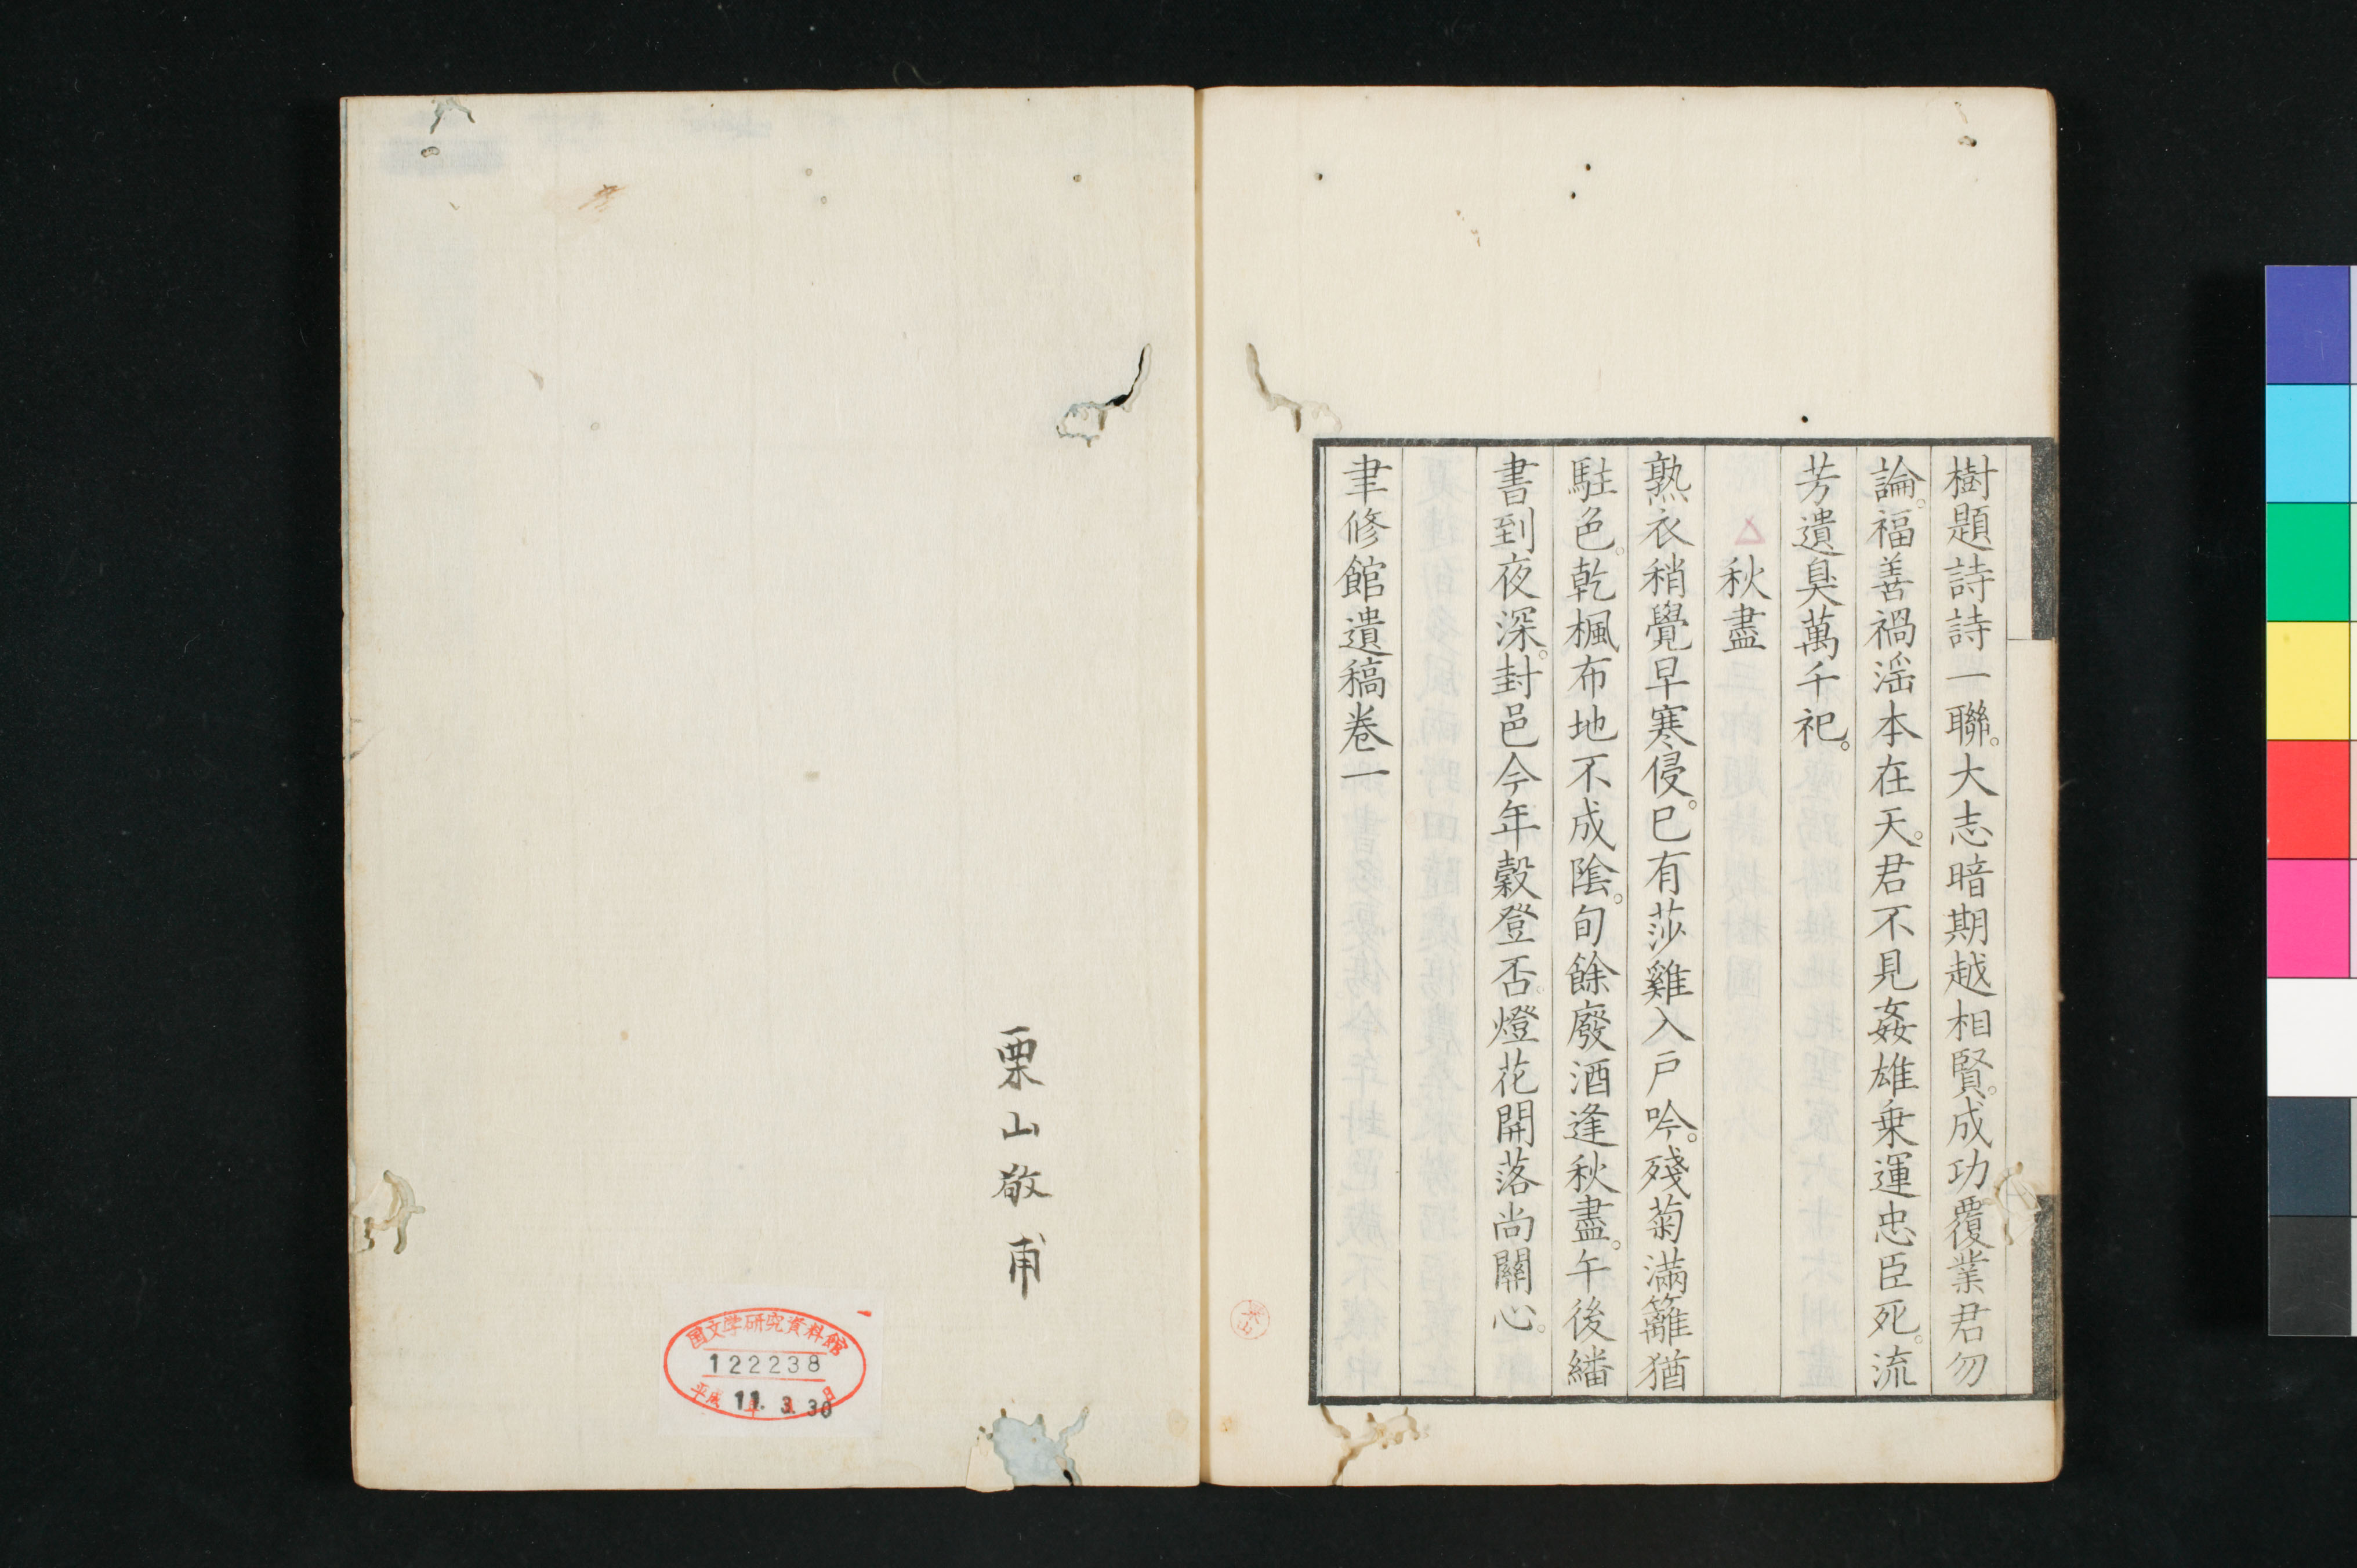 樹題詩詩一聯。大志暗期越相賢。成功覆業君勿
論。福善禍淫本在天。君不見姦雄乗運忠臣死。流
芳遺臭萬千祀。
△秋盡
熟衣稍覺早寒侵。已有莎雞入戸吟。殘菊滿籬猶
駐色。乾楓布地不成陰。旬餘廢酒逢秋盡。午後繙
書到夜深。封邑今年穀登否。燈花開落尚關心。
聿修館遺稿卷一
栗山敬甫
国文学研究資料館
122238
平成11年3月30日